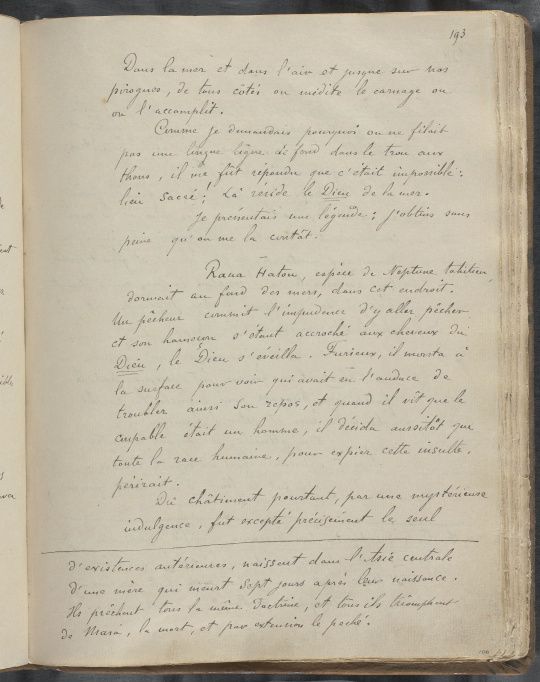 193
Dans la mer et dans l'air et jusque sur nos
pirogues, de tous côtés on médite le carnage ou
on l'accomplit.
Comme je demandais pourquoi on ne filait
pas une longue ligne de fond dans le trou aux
thons, il me fût répondu que c'était impossible:
lieu sacré! Là réside le Dieu de la mer.
Je pressentais une légende; j'obtins sans
peine qu'on me la contât.
Raua Hatou, espèce de Neptune tahitien,
dormait au fond des mers, dans cet endroit.
Un pêcheur commit l'imprudence d'y aller pêcher
et son hameçon s'étant accroché aux cheveux du
Dieu, le Dieu s'éveilla. Furieux, il monta à
la surface pour voir qui avait eu l'audace de
troubler ainsi son repos, et quand il vit que le
coupable était un homme, il décida aussitôt que
toute la race humaine, pour expier cette insulte,
périrait.
Du châtiment pourtant, par une mystérieuse
indulgence, fut excepté précisément le seul
d'existences antérieures, naissent dans l'Asie centrale
d'une mère qui meurt sept jours après leur naissance.
Ils prêchent tous la même doctrine, et tous ils triomphent
de Mara, la mort, et par extension le péché.